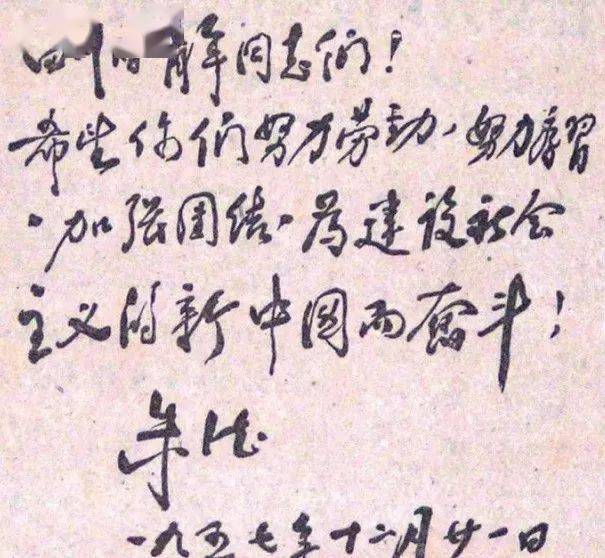 四川的青年同志们！
希望你们努力劳动、努力學習
、加强团结、为建设社会
主义的新中國而奮斗！
朱德
一九五七年十二月廿一日